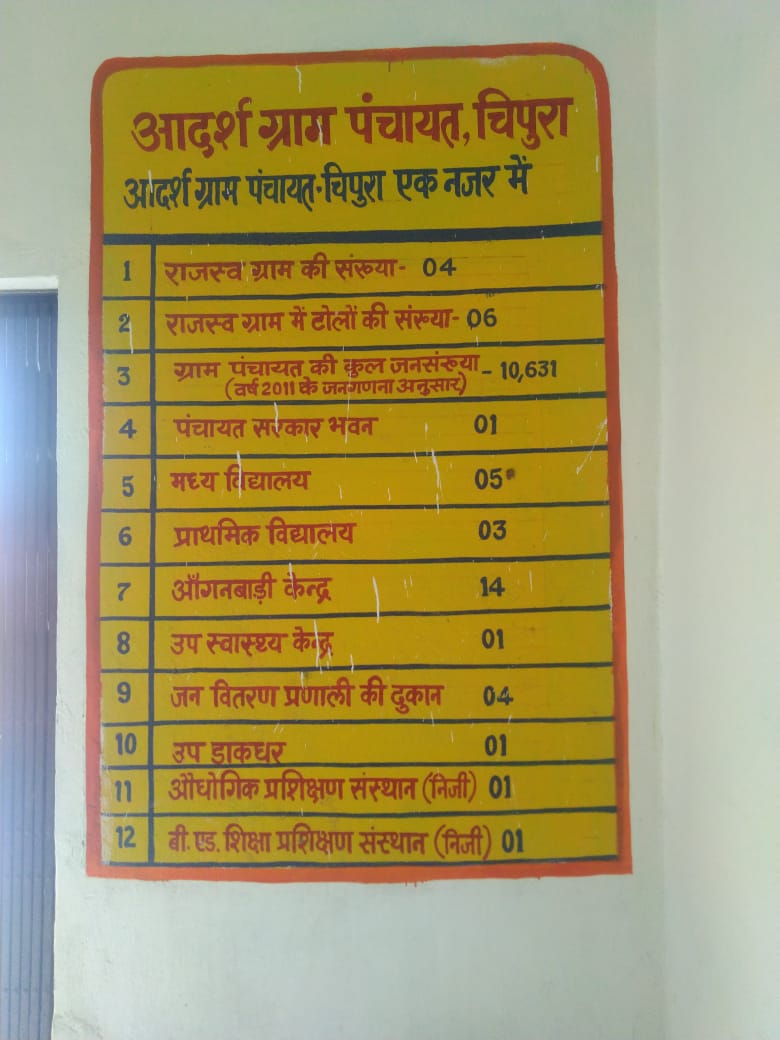 आदर्श ग्राम पंचायत, चिपुरा
आदर्श ग्राम पंचायत-चिपुरा एक नजर में
1 राजस्व ग्राम की संख्या- 04
2 राजस्व ग्राम में टोलों की संख्या- 06
3 ग्राम पंचायत की कुल जनसंख्या - 10,631
(वर्ष 2011 के जनगणना अनुसार)
4 पंचायत सरकार भवन 01
5 मध्य विद्यालय 05
6 प्राथमिक विद्यालय 03
7 आँगनबाड़ी केन्द्र 14
8 उप स्वास्थ्य केन्द्र 01
9 जन वितरण प्रणाली की दुकान 04
10 उप डाकघर 01
11 औधोगिक प्रशिक्षण संस्थान (निजी) 01
12 बी. एड. शिक्षा प्रशिक्षण संस्थान (निजी) 01